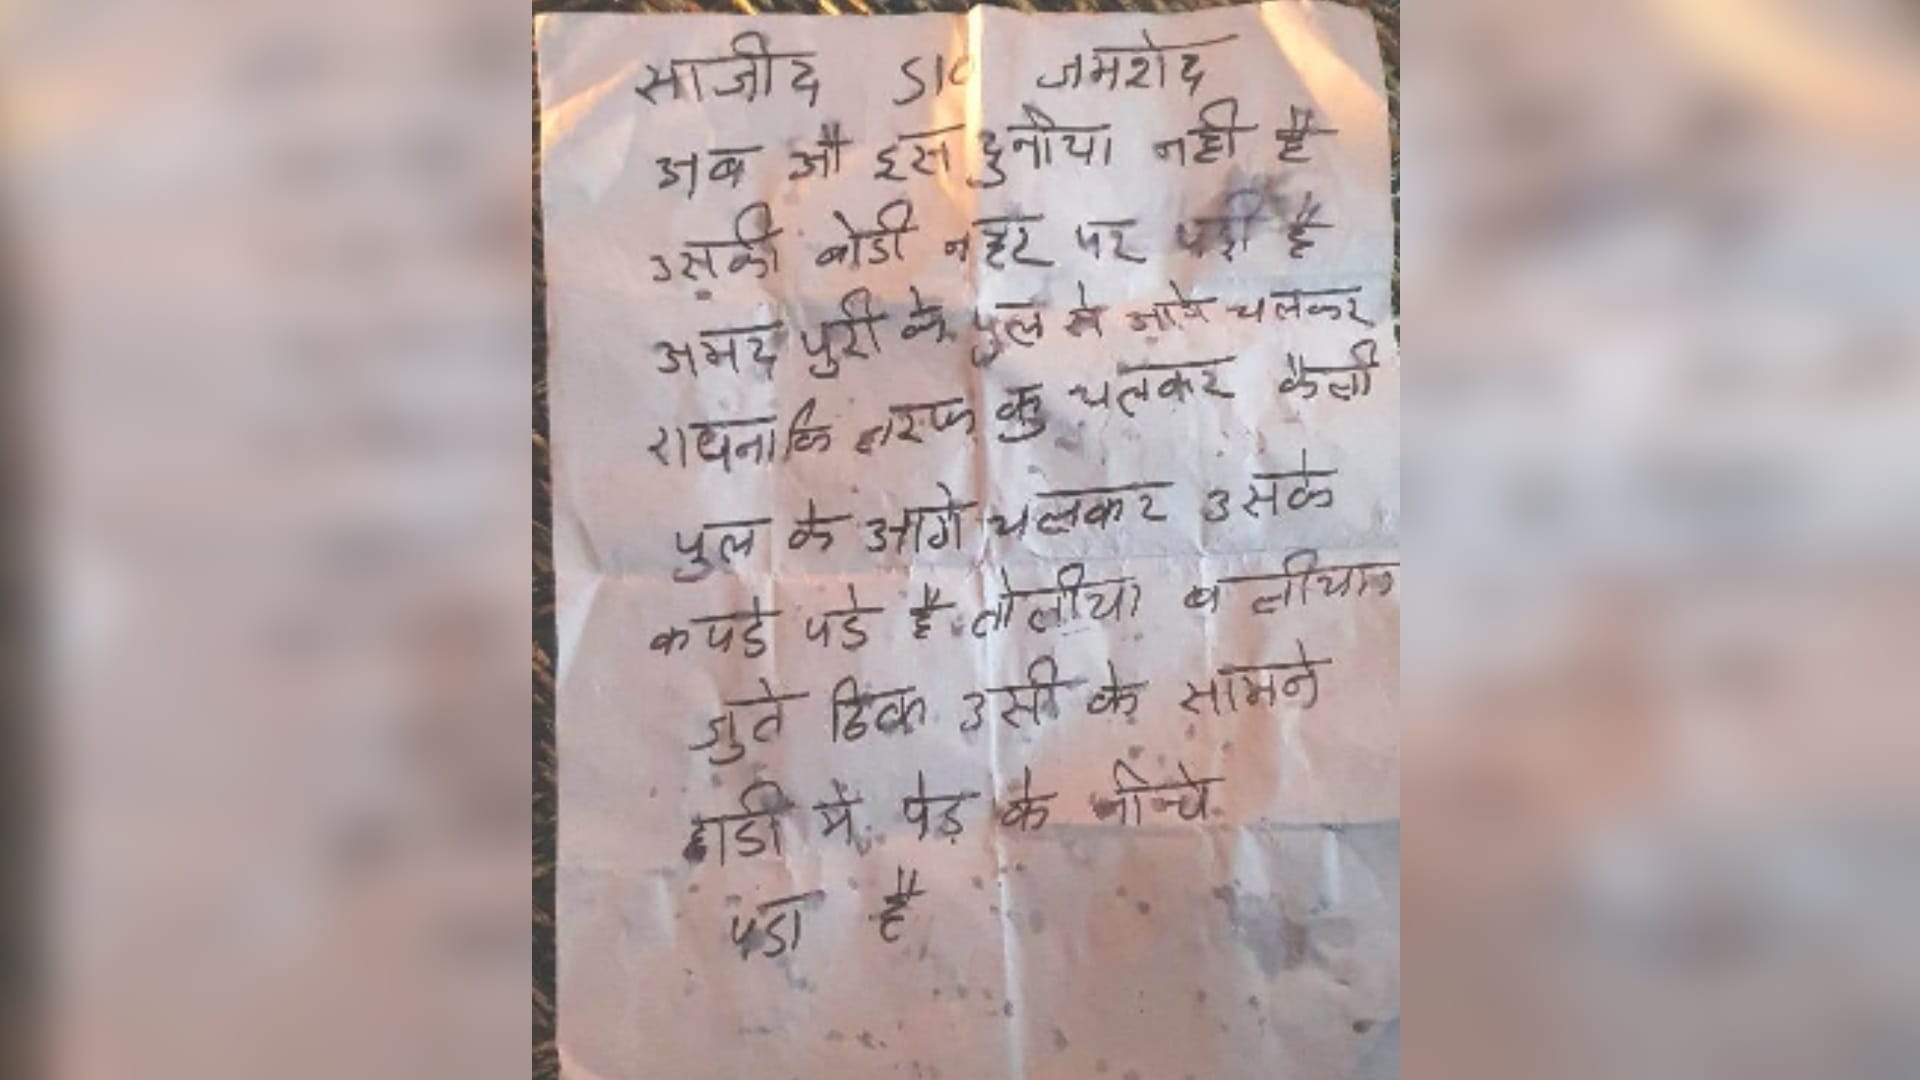 साजीद S/O जमशेद
अब औ इस दुनीया नही है
उसकी बोडी नहर पर पडी है
अमद पुरी के पुल से आगे चलकर
राधनाकि तरफ कु चलकर कैली
पुल के आगे चलकर उसके
कपडे पडे है तोलीया व लीयान
जुते ठिक उसी के सामने
हाडी मे पेड़ के नीच्चे
पडा है